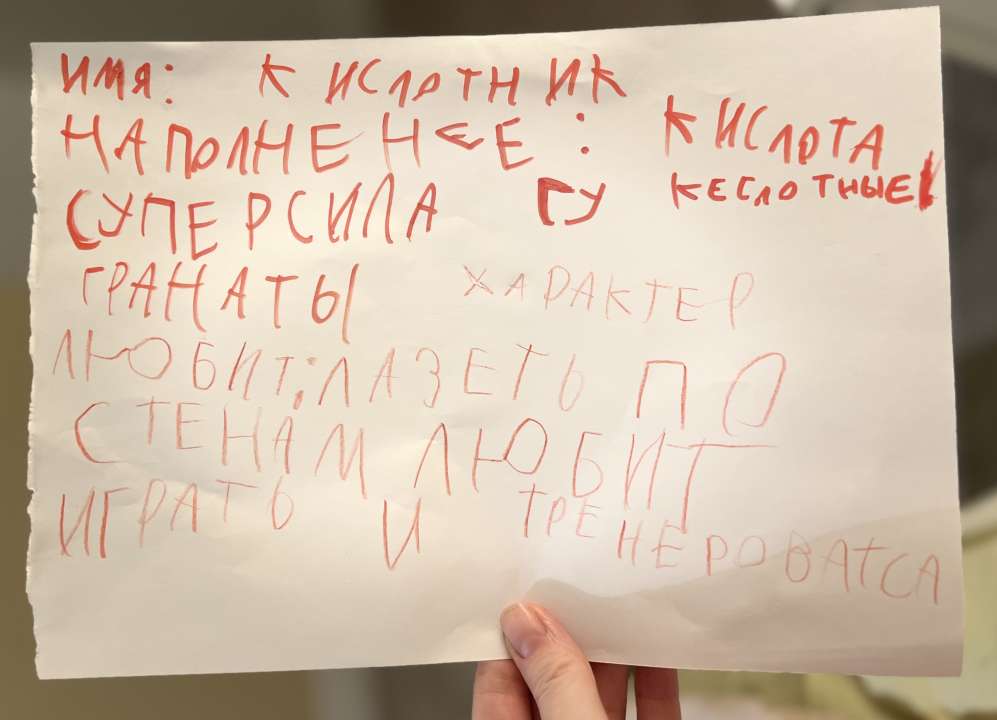 ИМЯ: КИСЛОТНИК
НАПОЛНЕНЕЕ: КИСЛОТА
СУПЕРСИЛА ГУ КЕСЛОТНЫЕ
ГРАНАТЫ ХАРАКТЕР
ЛЮБИТ: ЛАЗЕТЬ ПО
СТЕНАМ ЛЮБИТ
ИГРАТЬ И ТРЕНЕРОВАТСА